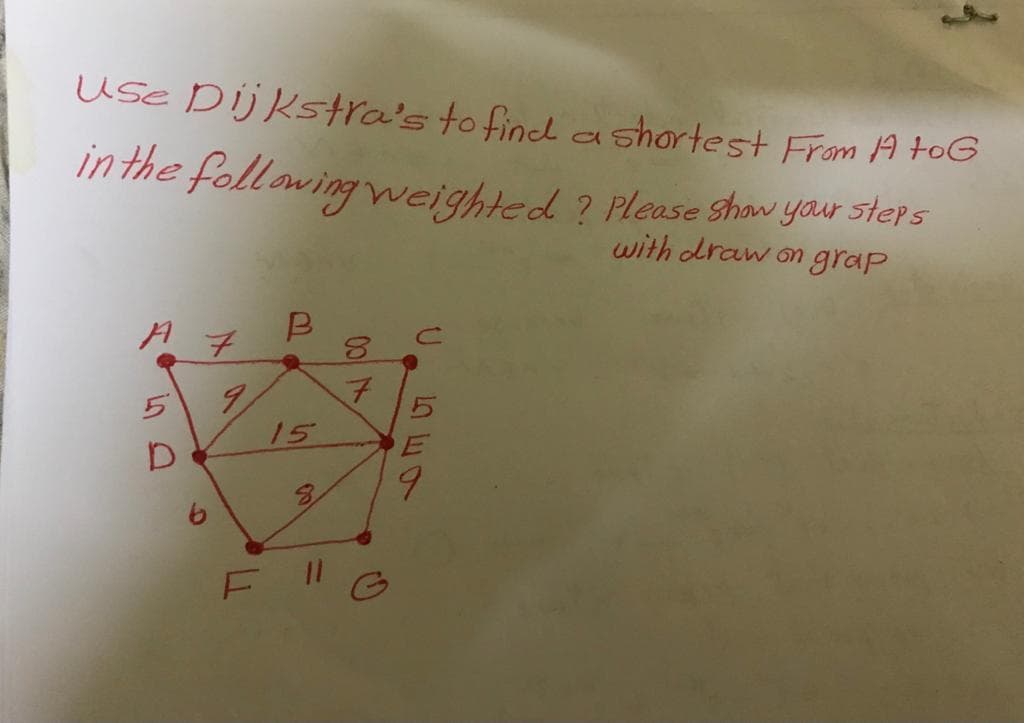 Use Dijkstra's to find a shortest From A to G
in the following weighted ? Please show your steps
with draw on grap
A 7 B 8 C
5 9 7 5
D 15 E
6 8 9
F 11 G